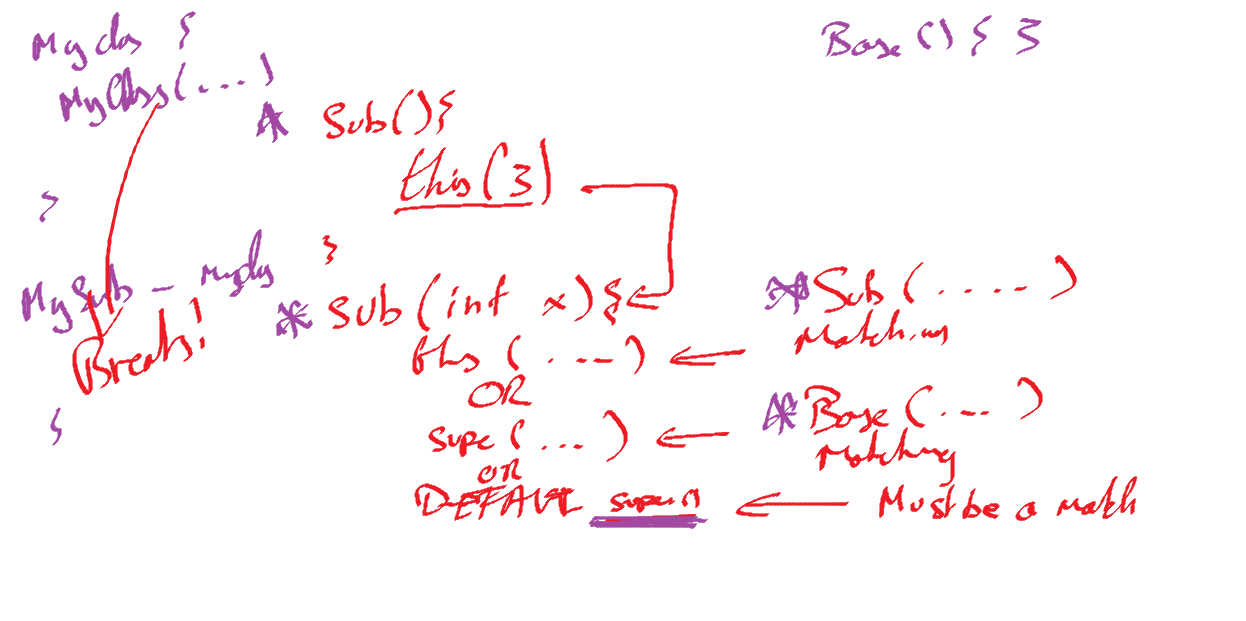 Myclas {
MyClass(....)
}
MySub _ Myclas
Breaks!
}
Base () { }
* Sub(){
this(3)
}
* Sub(int x){
this (....)
OR
supe(....)
OR
DEFAULT super()
* Sub(.....)
Matching
* Base(....)
Matching
Must be a match